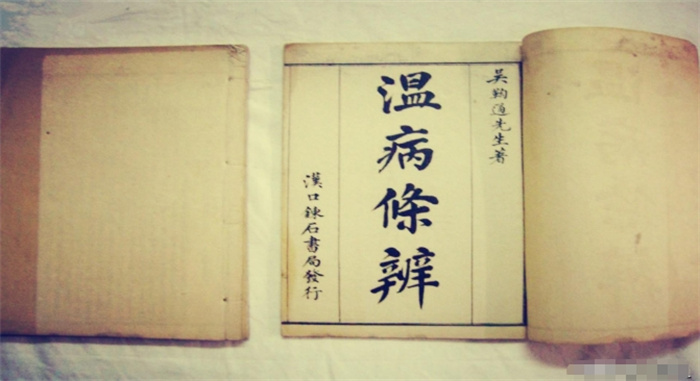 吳鞠通先生著
温病條辨
漢口鍊石書局發行